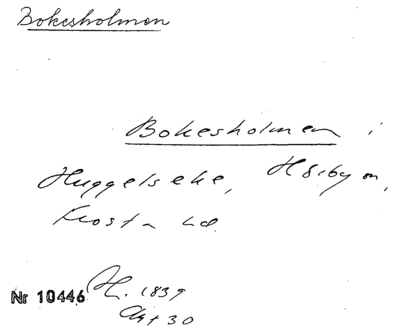 Bokesholmen
Bokesholmen i
Huggelseke, Hörby sn,
Frosta hd.
Nr 10446 H. 1839
Akt 30